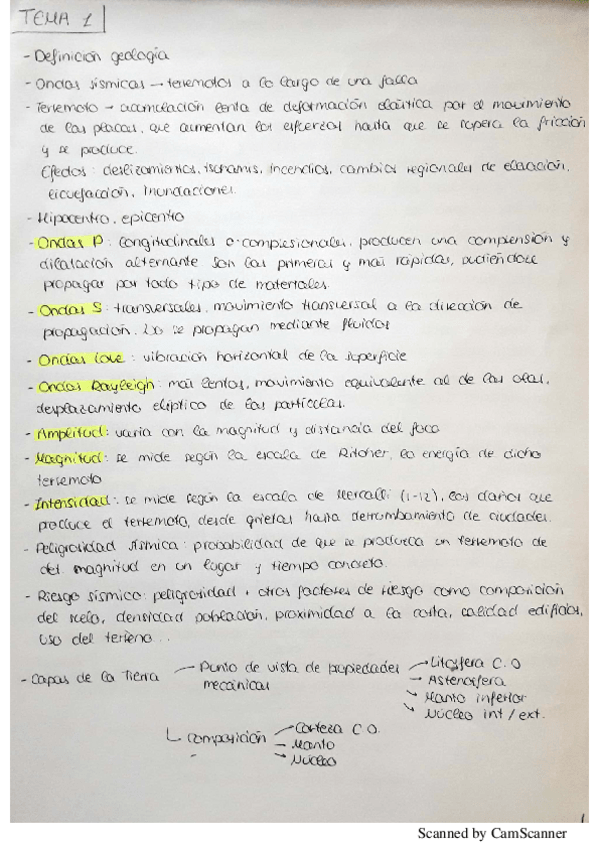 TEMA 1
- Definición geología
- Ondas sísmicas → terremotos a lo largo de una falla
- Terremoto → acumulación lenta de deformación elástica por el movimiento
de las placas, que aumentan los esfuerzos hasta que se supera la fricción
y se produce.
Efectos: deslizamientos, tsunamis, incendios, cambios regionales de elevación,
licuefacción, inundaciones.
- Hipocentro, epicentro
- Ondas P: longitudinales o compresionales, producen una compresión y
dilatación alternante son las primeras y más rápidas, pudiéndose
propagar por todo tipo de materiales.
- Ondas S: transversales, movimiento transversal a la dirección de
propagación. No se propagan mediante fluidos
- Ondas Love: vibración horizontal de la superficie
- Ondas Rayleigh: más lentos, movimiento equivalente al de las olas,
desplazamiento elíptico de las partículas.
- Amplitud: varía con la magnitud y distancia del foco
- Magnitud: se mide según la escala de Ritcher, la energía de dicho
terremoto
- Intensidad: se mide según la escala de Mercalli (1-12), los daños que
produce el terremoto, desde grietas hasta derrumbamiento de ciudades.
- Peligrosidad sísmica: probabilidad de que se produzca un terremoto de
det. magnitud en un lugar y tiempo concreto.
- Riesgo sísmico: peligrosidad + otros factores de riesgo como composición
del suelo, densidad población, proximidad a la costa, calidad edificios,
uso del terreno...
- Capas de la Tierra → Punto de vista de propiedades mecánicas
→ Litosfera C. O
→ Astenosfera
→ Manto inferior
→ Núcleo int / ext.
↳ Composición
→ Corteza C O.
→ Manto
→ Núcleo
1
Scanned by CamScanner